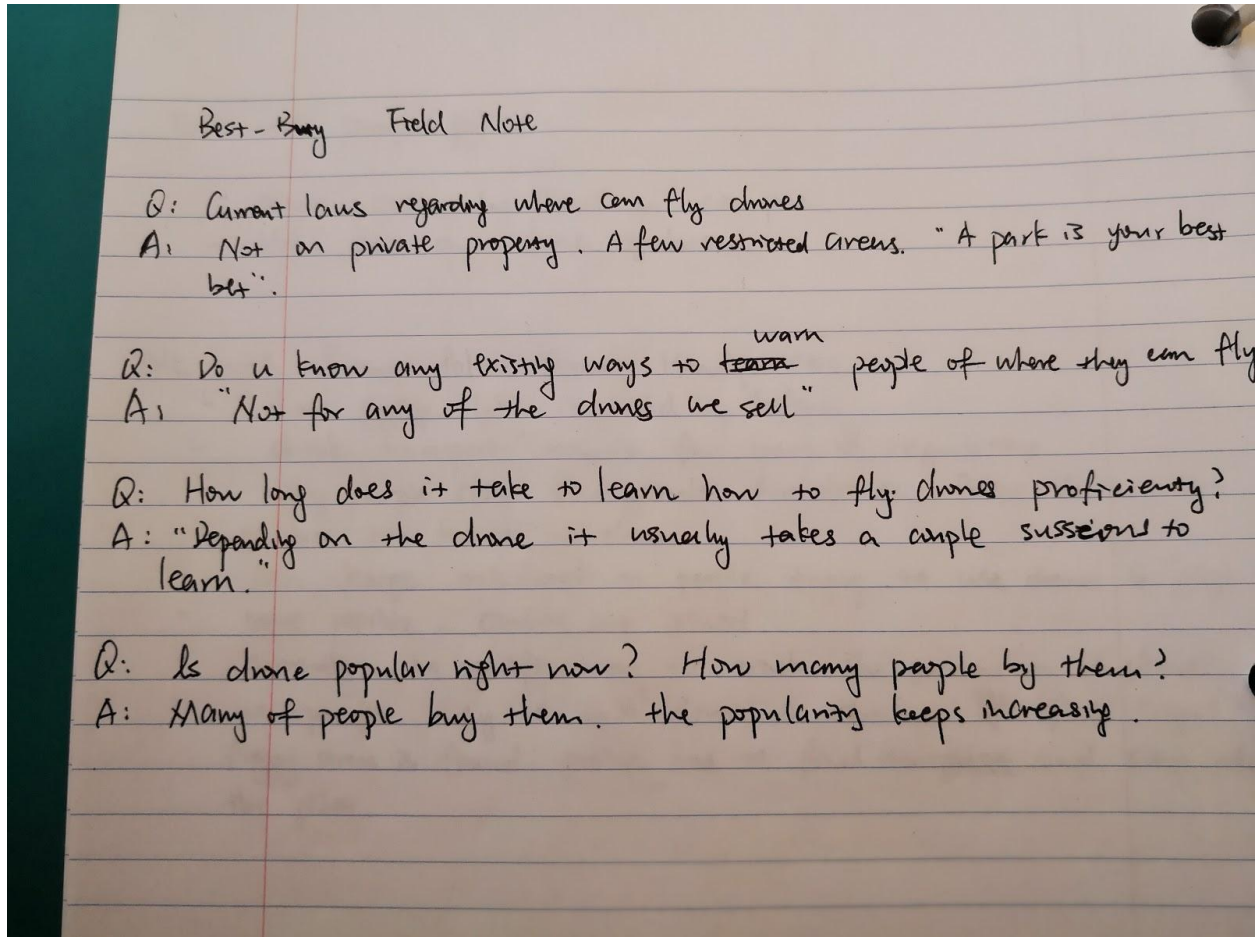 Best-Buy Field Note
Q: Current laws regarding where can fly drones
A: Not on private property. A few restricted areas. "A park is your best
bet".
warn
Q: Do u know any existing ways to learn people of where they can fly
A: "Not for any of the drones we sell"
Q: How long does it take to learn how to fly drones proficiently?
A: "Depending on the drone it usually takes a couple sussions to
learn."
Q: Is drone popular right now? How many people by them?
A: Many of people buy them. the popularity keeps increasing.